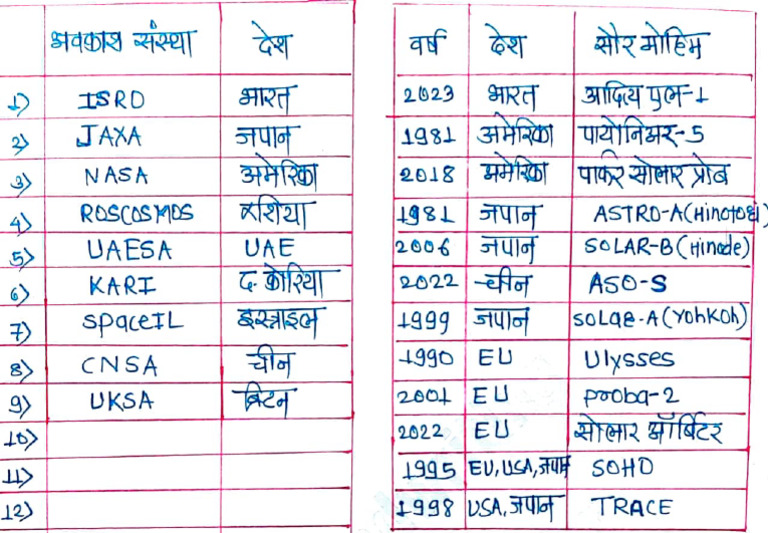 अवकाश संस्था देश
1) ISRO भारत
2) JAXA जपान
3) NASA अमेरिका
4) ROSCOSMOS रशिया
5) UAESA UAE
6) KARI द. कोरिया
7) SpaceIL इस्त्राइल
8) CNSA चीन
9) UKSA ब्रिटन
10)
11)
12)
वर्ष देश सौर मोहिम
2023 भारत आदित्य एल-1
1981 अमेरिका पायोनिअर-5
2018 अमेरिका पार्कर सोलार प्रोब
1981 जपान ASTRO-A(Hinotori)
2006 जपान SOLAR-B(Hinode)
2022 चीन ASO-S
1999 जपान SOLAR-A(YohKoh)
1990 EU Ulysses
2001 EU Proba-2
2022 EU सोलार ऑर्बिटर
1995 EU, USA, जपान SOHO
1998 USA, जपान TRACE